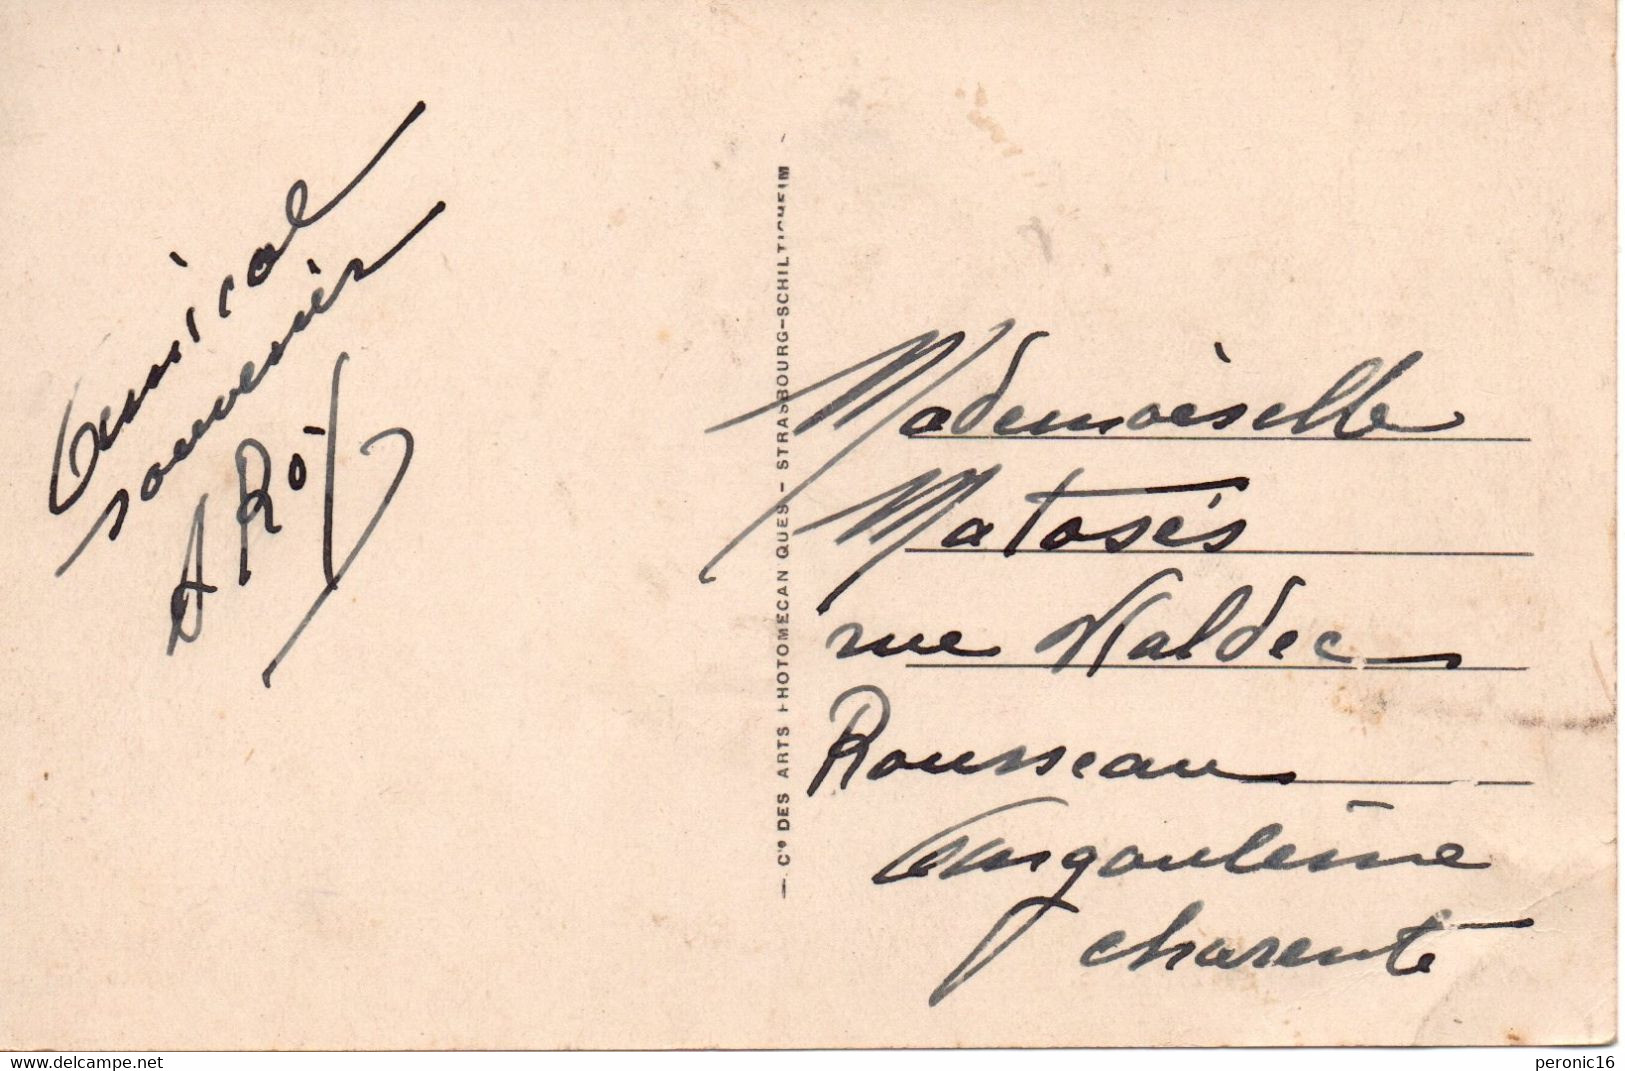 Amical
souvenir
A Roy
— Cie DES ARTS PHOTOMECANIQUES — STRASBOURG-SCHILTIGHEIM —
Mademoiselle
Matosès
rue Waldec
Rousseau
Angoulême
Charente
www.delcampe.net
peronic16